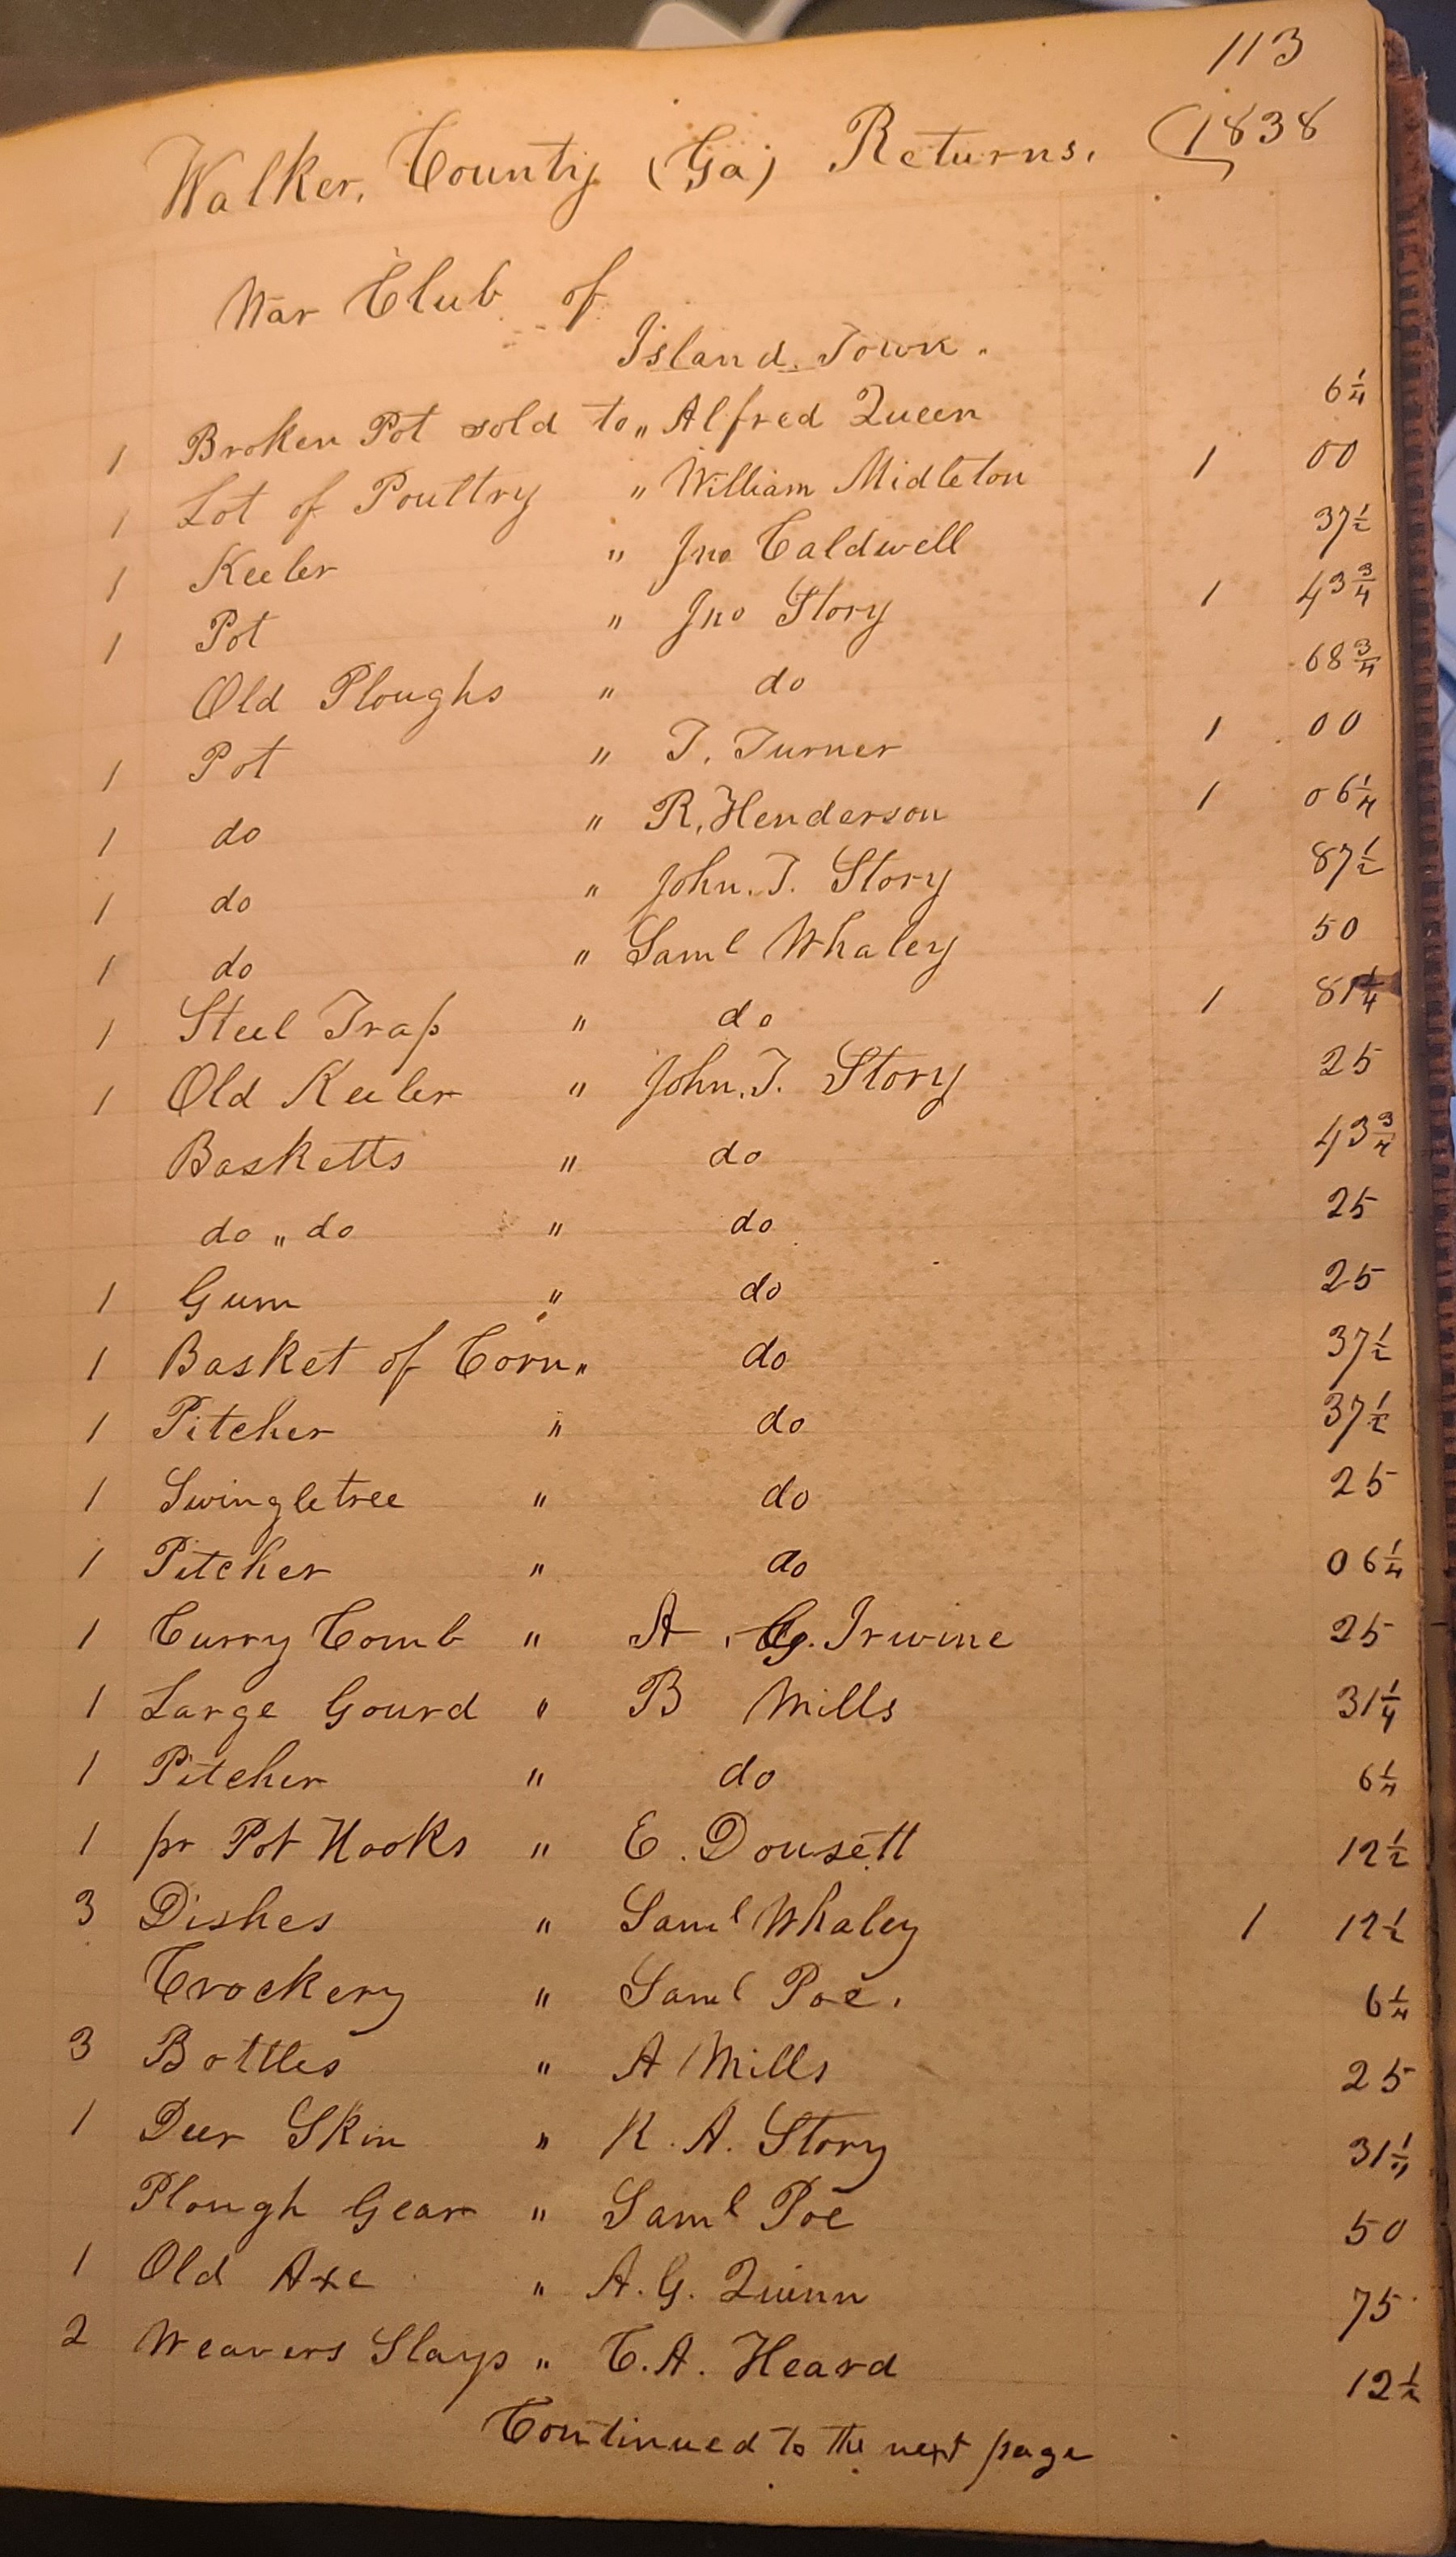 113
Walker, County (Ga) Returns. 1838
War Club of
Island Town.
1 Broken Pot sold to „ Alfred Queen 6¼
1 Lot of Poultry „ William Midleton 1 00
1 Keeler „ Jno Caldwell 37½
1 Pot „ Jno Story 1 43¾
Old Ploughs „ do 68¾
1 Pot „ T. Turner 1 00
1 do „ R. Henderson 1 06¼
1 do „ John. T. Story 87½
1 do „ Saml Whaley 50
1 Steel Trap „ do 1 81¼
1 Old Keeler „ John. T. Story 25
Basketts „ do 43¾
do „ do „ do 25
1 Gum „ do 25
1 Basket of Corn „ do 37½
1 Pitcher „ do 37½
1 Swingletree „ do 25
1 Pitcher „ do 06¼
1 Curry Comb „ A. G. Irwine 25
1 Large Gourd „ B Mills 31¼
1 Pitcher „ do 6¼
1 pr Pot Hooks „ E. Dousett 12½
3 Dishes „ Saml Whaley 1 12½
Crockery „ Saml Poe. 6¼
3 Bottles „ A Mills 25
1 Deer Skin „ R. A. Story 31¼
Plough Gear „ Saml Poe 50
1 Old Axe „ A. G. Quinn 75
2 Weavers Slays „ C. A. Heard 12½
Continued to the next page